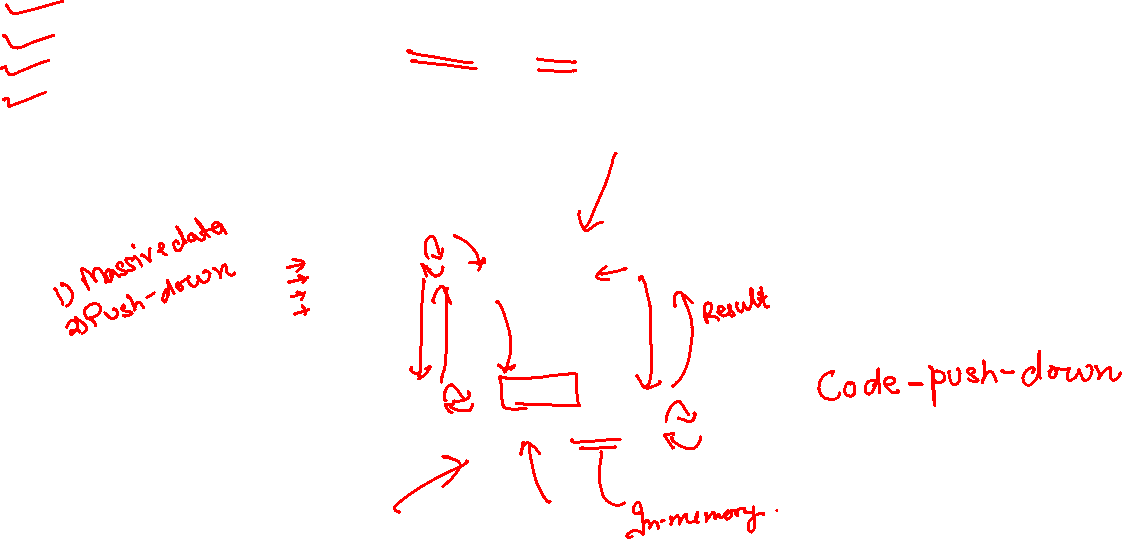 1) Massive data
2) Push-down
Result
Code-push-down
In-memory.